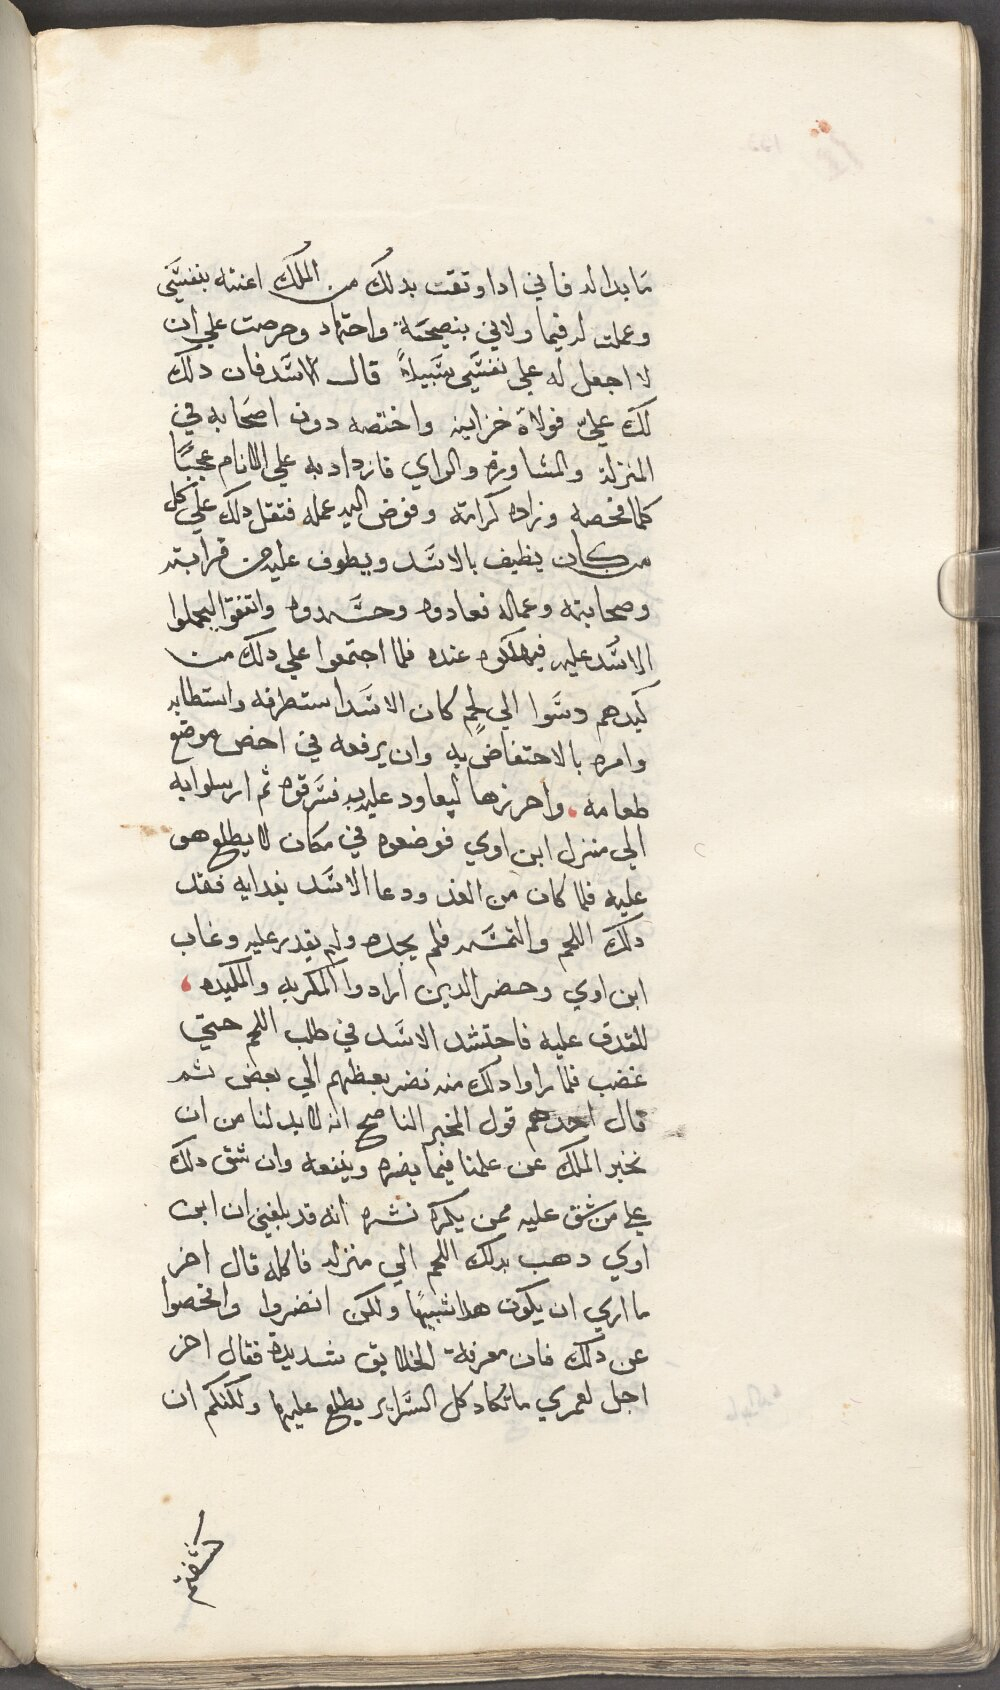 ما بدا له فاني ادا وتقت بدلك من الملك اعنته بنفسي
وعملت له فيما ولاني بنصيحة واجتهاد وحرصت علي ان
لا اجعل له علي نفسي سبيلاً قال الاسد فان دلك
لك عليّ فولاه خزاينه واختصه دون اصحابه في
المنزلة والمشاوره والراي فازداد به علي الايام عجبًا
كلما فحصه وزاده كرامة وفوض اليه عمله فتقل دلك علي كل
من كان يظيف بالاسد ويطوف عليه من قرابته
وصحابته وعماله فعادوه وحسدوه واتفقوا ليحملوا
الاسد عليه فيهلكوه عنده فلما اجتمعوا علي دلك من
كيدهم دسوا الي لحم كان الاسد استطرفه واستطابه
وامره بالاحتفاض به وان يرفعه في احض موضع
طعامه واحرزها ليعاود عليه به فسرقوه ثم ارسلوا به
الي منزل ابن اوي فوضعوه في مكان لا يطلع هو
عليه فلما كان من الغد ودعا الاسد بغدايه فقد
دلك اللحم والتمسه فلم يجده ولم يقدر عليه وغاب
ابن اوي وحضر الدين ارادوا المكر به والمكيده
للقدف عليه فاحتشد الاسد في طلب اللحم حتي
غضب فلما راوا دلك منه نضر بعظهم الي بعض ثم
قال احدهم قول المخبر الناصح انه لا بد لنا من ان
نخبر الملك عن علمنا فيما يضره وينفعه وان شق دلك
علي من شق عليه ممن يكره نشره انه قد بلغني ان ابن
اوي دهب بدلك اللحم الي منزله فاكله قال اخر
ما اري ان يكون هدا شبيهًا ولكن انضروا وافحصوا
عن دلك فان معرفة الخلايق شديدة فقال اخر
اجل لعمري ما تكاد كل السراير يطلع عليها ولكنكم ان